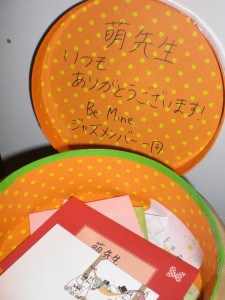 萌先生
いつも
ありがとうございます!
Be Mine
ジャズメンバー一同
萌先生